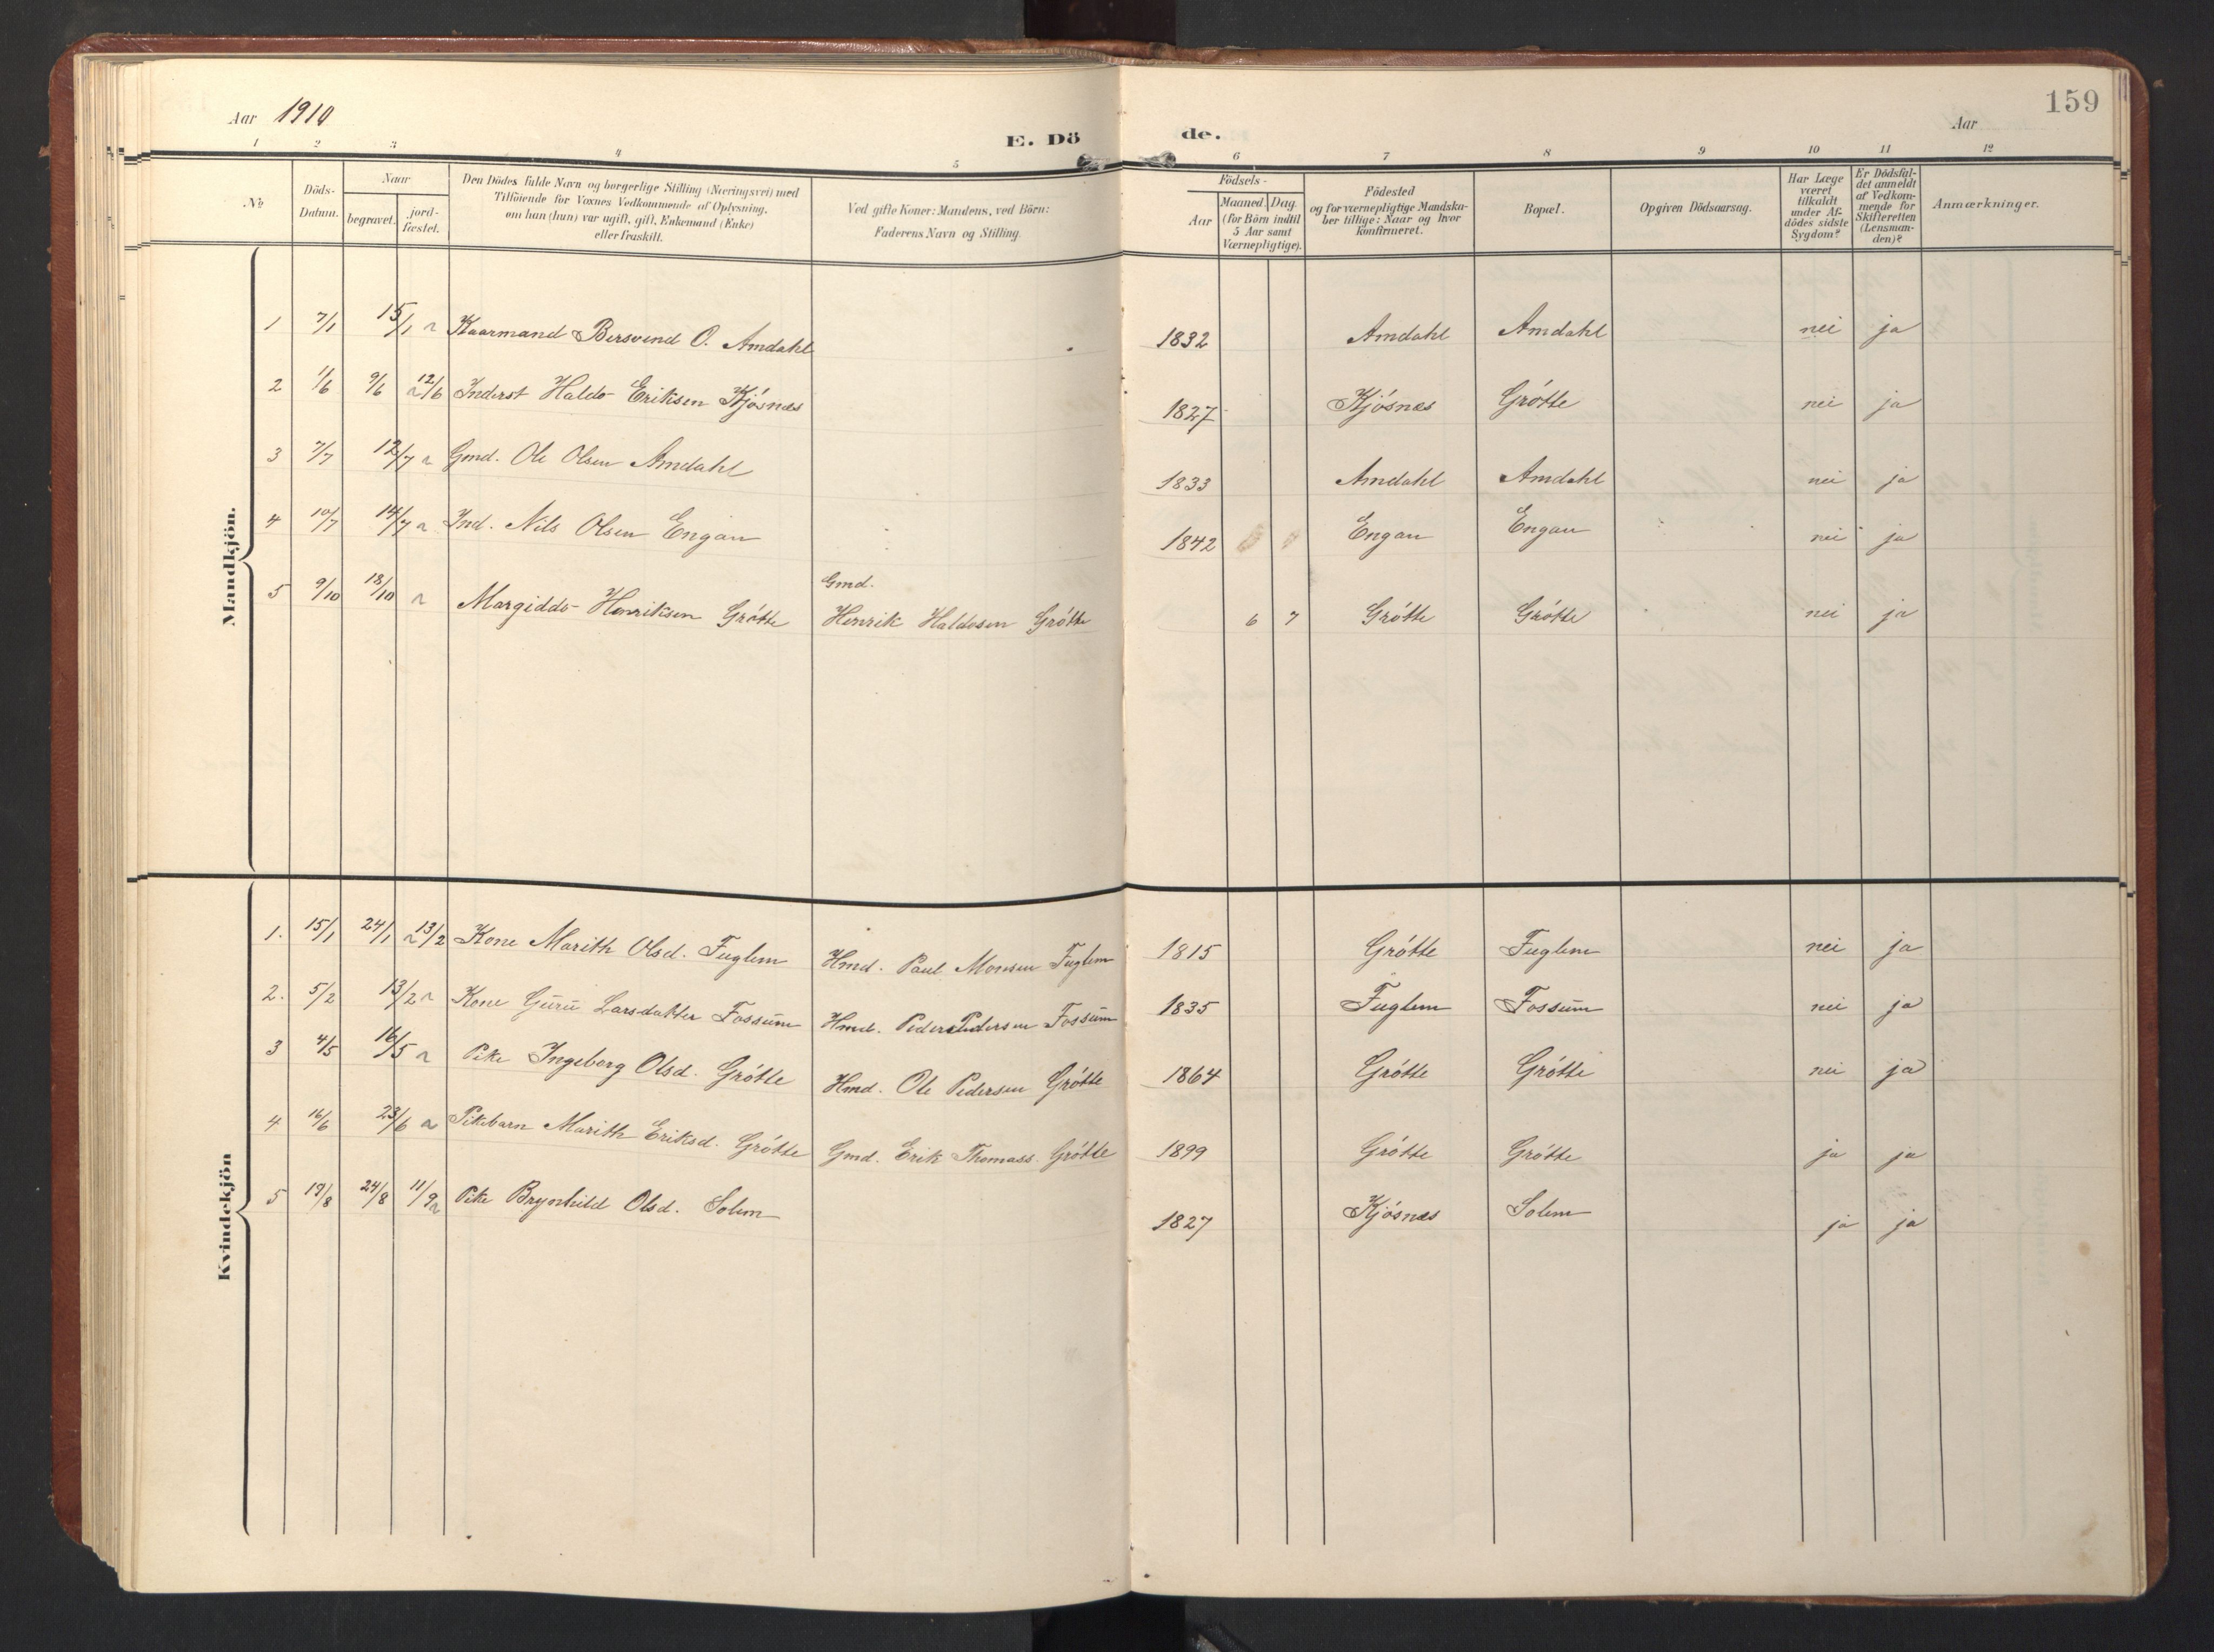 Aar 1910
E. Dö de.
Aar
159
1 2 3 4 5 6 7 8 9 10 11 12
No
Döds-Datum.
Naar
begravet.
jord-fæstet.
Den Dödes fulde Navn og borgerlige Stilling (Næringsvei) med
Tilföiende for Voxnes Vedkommende af Oplysning,
om han (hun) var ugift, gift, Enkemand (Enke)
eller fraskilt.
Ved gifte Koner: Mandens, ved Börn:
Faderens Navn og Stilling.
Födsels-
Aar
Maaned. Dag.
(for Börn indtil
5 Aar samt
Værnepligtige).
Födested
og for værnepligtige Mandska-
ber tillige: Naar og hvor
konfirmeret.
Bopæl.
Opgiven Dödsaarsag.
Har Læge
været
tilkaldt
under Af-
dödes sidste
Sygdom?
Er Dödsfal-
det anmeldt
af Vedkom-
mende for
Skifteretten
(Lensman-
den)?
Anmærkninger.
Mandkjön.
1 7/1 15/1 Kaarmand Bersvend O. Amdahl 1832 Amdahl Amdahl nei ja
2 1/6 9/6 12/6 Inderst Haldo Eriksen Kjósnæs 1827 Kjósnæs Grótte nei ja
3 7/7 12/7 Gmd. Ole Olsen Amdahl 1833 Amdahl Amdahl nei ja
4 10/7 14/7 Ind. Nils Olsen Engan 1842 Engan Engan nei ja
5 9/10 18/10 Margiddo Henriksen Grótte Gmd. Henrik Haldosen Grótte 6 7 Grótte Grótte nei ja
Kvindekjön
1. 15/1 24/1 13/2 Kone Marith Olsd. Fuglem Hmd. Paul Monsen Fuglem 1815 Grótte Fuglem nei ja
2. 5/2 13/2 Kone Guru Larsdatter Fossum Hmd. Peder Pedersen Fossum 1835 Fuglem Fossum nei ja
3 4/5 16/5 Pike Ingeborg Olsd. Grótte Hmd. Ole Pedersen Grótte 1864 Grótte Grótte nei ja
4 16/6 23/6 Pikebarn Marith Eriksd. Grótte Gmd. Erik Thomass. Grótte 1899 Grótte Grótte ja ja
5 19/8 24/8 11/9 Pike Brynhild Olsd. Solem 1827 Kjósnæs Solem ja ja